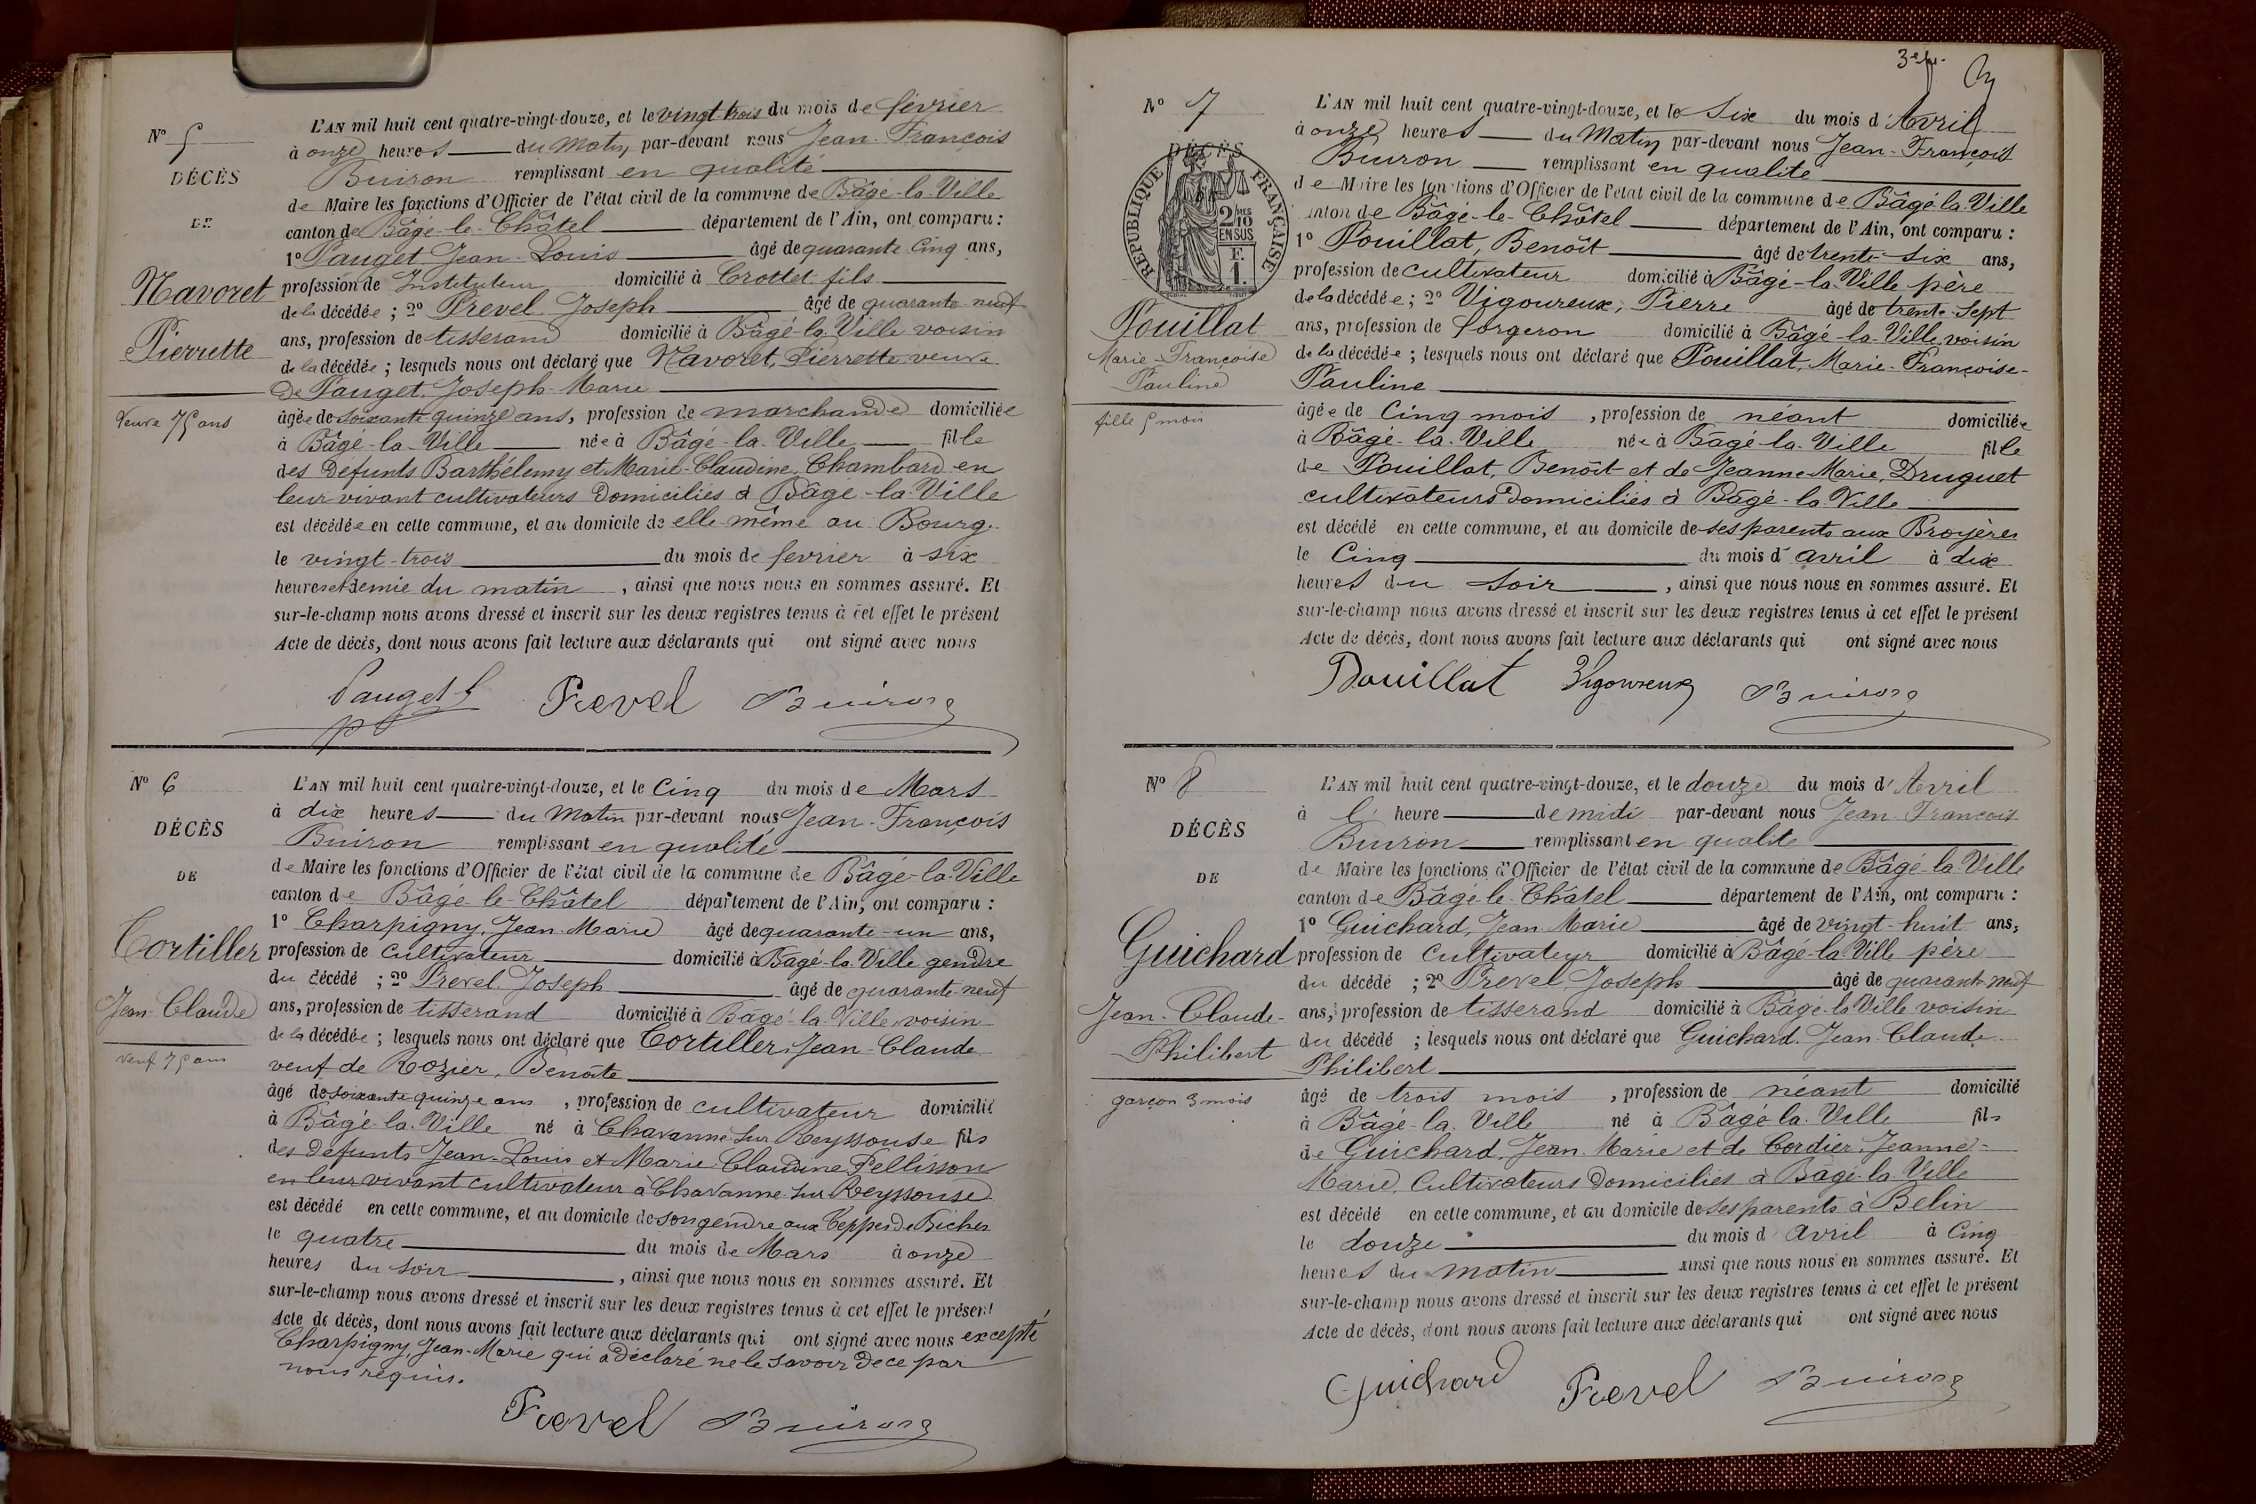 No 5
DÉCÈS
DE
Navoret
Pierrette
Veuve 75 ans
L'AN mil huit cent quatre-vingt-douze, et le vingt-trois du mois de février
à onze heures du Matin par-devant nous Jean-François
Buiron remplissant en qualité
de Maire les fonctions d'Officier de l'état civil de la commune de Bâgé-la-Ville
canton de Bâgé-le-Châtel département de l'Ain, ont comparu :
1o Pauget Jean-Louis âgé de quarante-cinq ans,
profession de Instituteur domicilié à Crottet fils
de la décédée ; 2o Prevel Joseph âgé de quarante neuf
ans, profession de tisserand domicilié à Bâgé-la-Ville voisin
de la décédée ; lesquels nous ont déclaré que Navoret, Pierrette veuve
de Pauget, Joseph-Marie
âgée de soixante quinze ans, profession de marchande domiciliée
à Bâgé-la-Ville née à Bâgé-la-Ville fille
des défunts Barthélemy et Marie-Claudine Chambard en
leur vivant cultivateurs domiciliés à Bâgé-la-Ville
est décédée en cette commune, et au domicile de elle-même au Bourg.
le vingt-trois du mois de février à six
heures et demie du matin, ainsi que nous nous en sommes assuré. Et
sur-le-champ nous avons dressé et inscrit sur les deux registres tenus à cet effet le présent
Acte de décès, dont nous avons fait lecture aux déclarants qui ont signé avec nous
Pauget Prevel Buiron
No 6
DÉCÈS
DE
Cortiller
Jean-Claude
Veuf 75 ans
L'AN mil huit cent quatre-vingt-douze, et le Cinq du mois de Mars
à dix heures du Matin par-devant nous Jean-François
Buiron remplissant en qualité
de Maire les fonctions d'Officier de l'état civil de la commune de Bâgé-la-Ville
canton de Bâgé-le-Châtel département de l'Ain, ont comparu :
1o Charpigny, Jean-Marie âgé de quarante-un ans,
profession de cultivateur domicilié à Bâgé-la-Ville gendre
du décédé ; 2o Prevel, Joseph âgé de quarante-neuf
ans, profession de tisserand domicilié à Bâgé-la-Ville, voisin
de la décédée ; lesquels nous ont déclaré que Cortiller, Jean-Claude
veuf de Rozier, Benoîte
âgé de soixante quinze ans, profession de cultivateur domicilié
à Bâgé-la-Ville né à Chavanne sur Reyssouse fils
des défunts Jean-Louis et Marie Claudine Pellisson
en leur vivant cultivateur à Chavanne sur Reyssouse
est décédé en cette commune, et au domicile de son gendre aux Teppes de Bicher
le quatre du mois de Mars à onze
heures du soir, ainsi que nous nous en sommes assuré. Et
sur-le-champ nous avons dressé et inscrit sur les deux registres tenus à cet effet le présent
Acte de décès, dont nous avons fait lecture aux déclarants qui ont signé avec nous excepté
Charpigny, Jean-Marie qui a déclaré ne le savoir de ce par
nous requis.
Prevel Buiron
3e f.
No 7
DÉCÈS
RÉPUBLIQUE FRANÇAISE
2/10 MES
EN SUS
F.
1.
Pouillat
Marie-Françoise
Pauline
fille 5 mois
L'AN mil huit cent quatre-vingt-douze, et le Six du mois d'Avril
à onze heures du Matin par-devant nous Jean-François
Buiron remplissant en qualité
de Maire les fonctions d'Officier de l'état civil de la commune de Bâgé-la-Ville
canton de Bâgé-le-Châtel département de l'Ain, ont comparu :
1o Pouillat, Benoît âgé de trente-six ans,
profession de cultivateur domicilié à Bâgé-la-Ville père
de la décédée ; 2o Vigoureux, Pierre âgé de trente-sept
ans, profession de forgeron domicilié à Bâgé-la-Ville, voisin
de la décédée ; lesquels nous ont déclaré que Pouillat, Marie-Françoise-
Pauline
âgée de Cinq mois, profession de néant domiciliée
à Bâgé-la-Ville née à Bâgé-la-Ville fille
de Pouillat, Benoît et de Jeanne-Marie, Druguet
cultivateurs domiciliés à Bâgé-la-Ville
est décédé en cette commune, et au domicile de ses parents aux Broyères
le Cinq du mois d'avril à dix
heures du soir, ainsi que nous nous en sommes assuré. Et
sur-le-champ nous avons dressé et inscrit sur les deux registres tenus à cet effet le présent
Acte de décès, dont nous avons fait lecture aux déclarants qui ont signé avec nous
Pouillat Vigoureux Buiron
No 8
DÉCÈS
DE
Guichard
Jean-Claude-
Philibert
garçon 3 mois
L'AN mil huit cent quatre-vingt-douze, et le douze du mois d'Avril
à l' heure de midi par-devant nous Jean-François
Buiron remplissant en qualité
de Maire les fonctions d'Officier de l'état civil de la commune de Bâgé-la-Ville
canton de Bâgé-le-Châtel département de l'Ain, ont comparu :
1o Guichard, Jean Marie âgé de vingt-huit ans,
profession de cultivateur domicilié à Bâgé-la-Ville père
du décédé ; 2o Prevel, Joseph âgé de quarante neuf
ans, profession de tisserand domicilié à Bâgé-la-Ville voisin
du décédé ; lesquels nous ont déclaré que Guichard, Jean-Claude
Philibert
âgé de trois mois, profession de néant domicilié
à Bâgé-la-Ville né à Bâgé-la-Ville fils
de Guichard, Jean-Marie et de Cordier, Jeanne-
Marie, Cultivateurs domiciliés à Bâgé-la-Ville
est décédé en cette commune, et au domicile de ses parents à Belin
le douze du mois d'avril à Cinq
heures du matin ainsi que nous nous en sommes assuré. Et
sur-le-champ nous avons dressé et inscrit sur les deux registres tenus à cet effet le présent
Acte de décès, dont nous avons fait lecture aux déclarants qui ont signé avec nous
Guichard Prevel Buiron